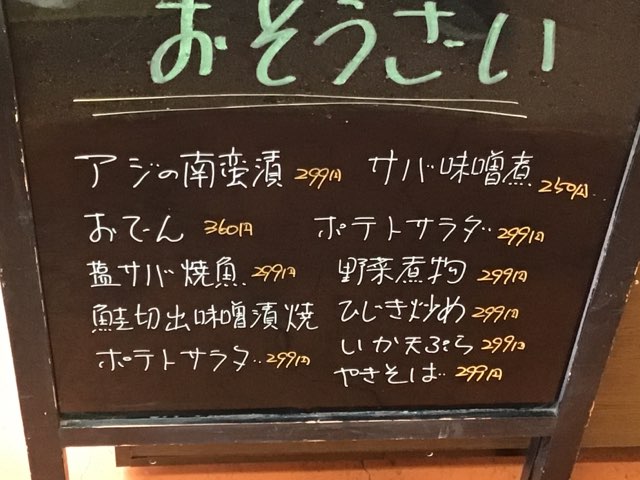 おそうざい
アジの南蛮漬 299円
サバ味噌煮 250円
おでん 360円
ポテトサラダ 299円
塩サバ焼魚 299円
野菜煮物 299円
鮭切出味噌漬焼
ひじき炒め 299円
ポテトサラダ 299円
いか天ぷら 299円
やきそば 299円